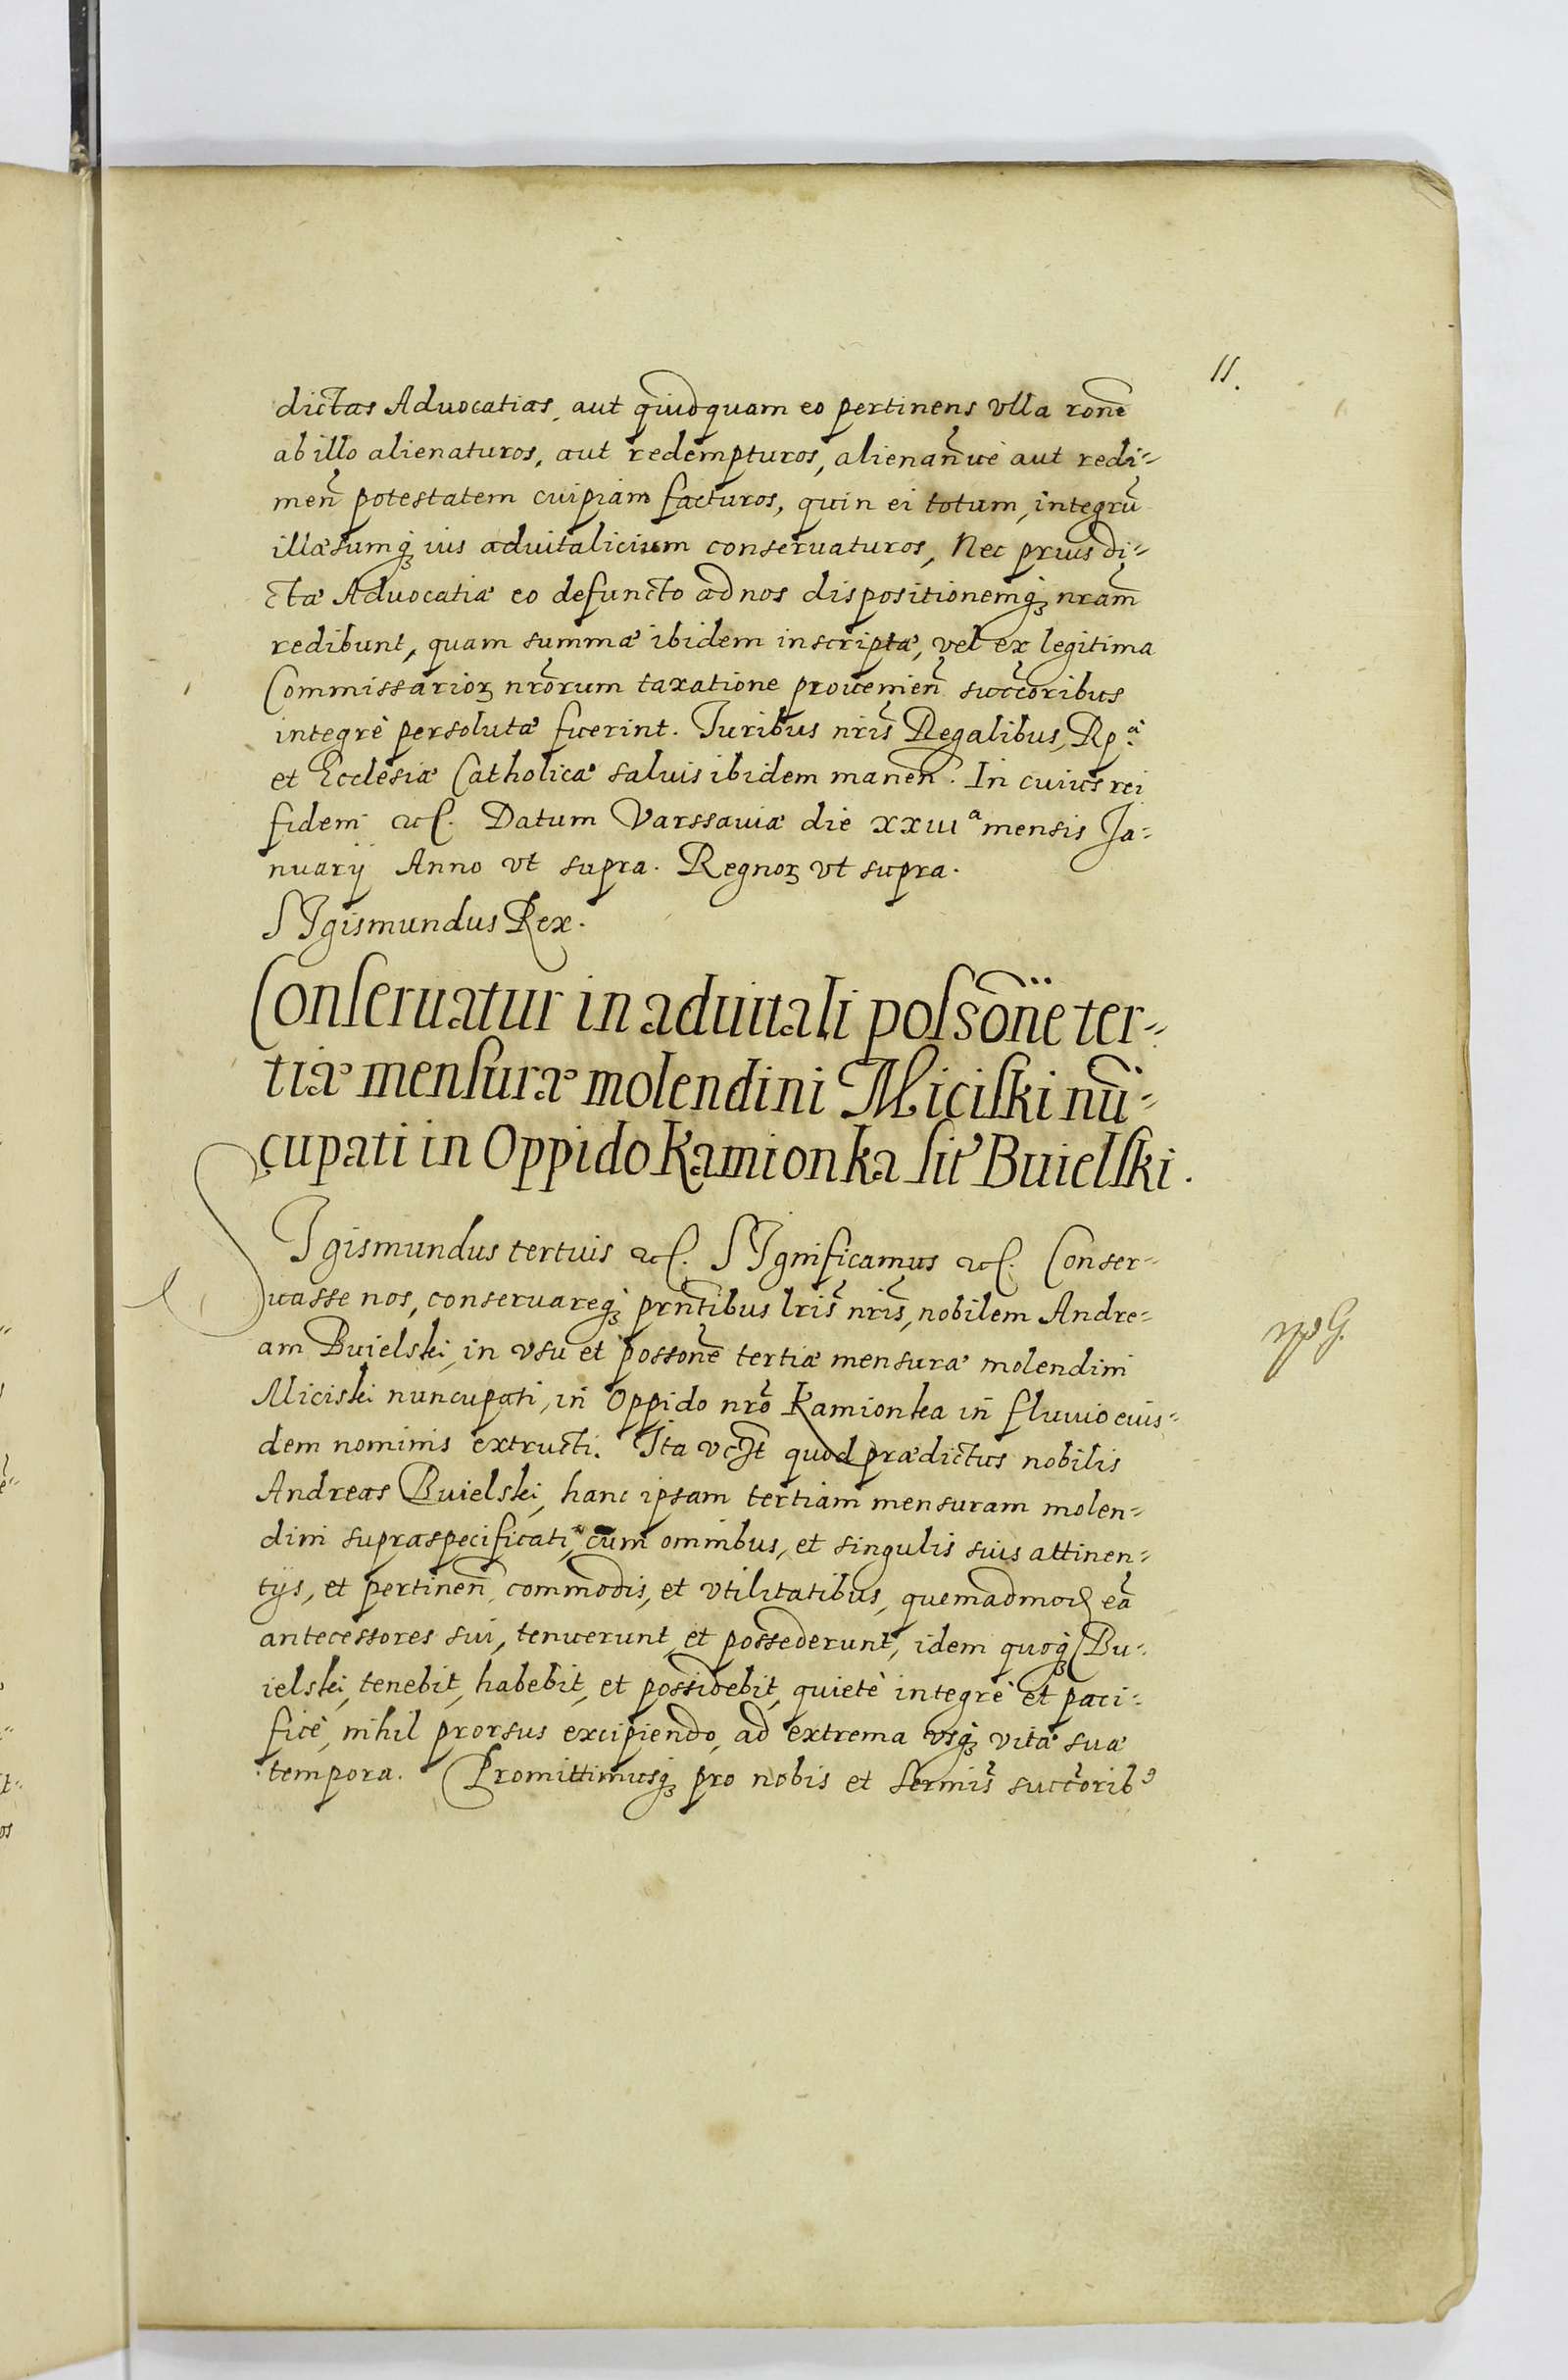 11.
dictas Advocatias, aut quidquam eo pertinens vlla rone͂
ab illo alienaturos, aut redempturos, alienan͂ue aut redi-
men͂ potestatem cuipiam facturos, quin ei totum, integru͂
illæsumq̃ ius aduitalicium conseruaturos, Nec prius di-
ctæ Aduocatiæ eo defuncto ad nos dispositionemq̃ nram͂
redibunt, quam summæ ibidem inscriptæ, vel ex legitima
Commissarioꝝ nrorum͂ taxatione prouenien͂ succoribus͂
integrè persolutæ fuerint. Iuribus nris͂ Regalibus, Rp.ᵃ
et Ecclesiæ Catholicæ saluis ibidem manen͂. In cuius rei
fidem etc. Datum Varssauiæ die xxiiiᵃ mensis Ja-
nuarij Anno vt supra. Regnoꝝ vt supra.
SIgismundus Rex.
Conseruatur in aduitali possone͂ ter-
tiæ mensuræ molendini Miciski nu͂-
cupati in Oppido Kamionka sit͂ Buielski.
SIgismundus tertius etc. SIgnificamus etc. Conser-
uasse nos, conseruareq̃ prntibus͂ lris͂ nris͂, nobilem Andre-
am Buielski, in vsu et possone͂ tertiæ mensuræ molendini
Miciski nuncupati, in Oppido nro͂ Kamionka in fluuio eius-
dem nominis extructi. Ita vt quod prædictus nobilis
Andreas Buielski, hanc ipsam tertiam mensuram molen-
dini supraspecificati, cum omnibus, et singulis suis attinen-
tijs, et pertinen͂, commodis, et vtilitatibus, quemadmod ea͂
antecessores sui, tenuerunt et possederunt, idem quoq̃ Bu-
ielski, tenebit, habebit, et possidebit, quietè integrè et paci-
ficè, nihil prorsus excipiendo, ad extrema vsq̃ vitæ suæ
tempora. Promittimusq̃ pro nobis et sermis͂ succorib͂ꝰ